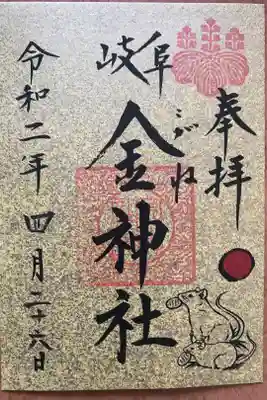 奉拝
岐阜
こがね
金神社
令和二年 四月二十六日